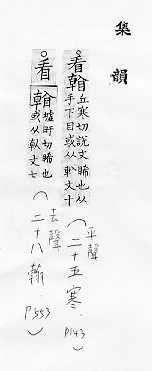 集韻
看𩹉丘寒切說文睎也从手下目或从倝文十
（平聲二十五寒．P143）
看翰墟旰切睎也或从倝文七
（去聲二十八翰．P553）